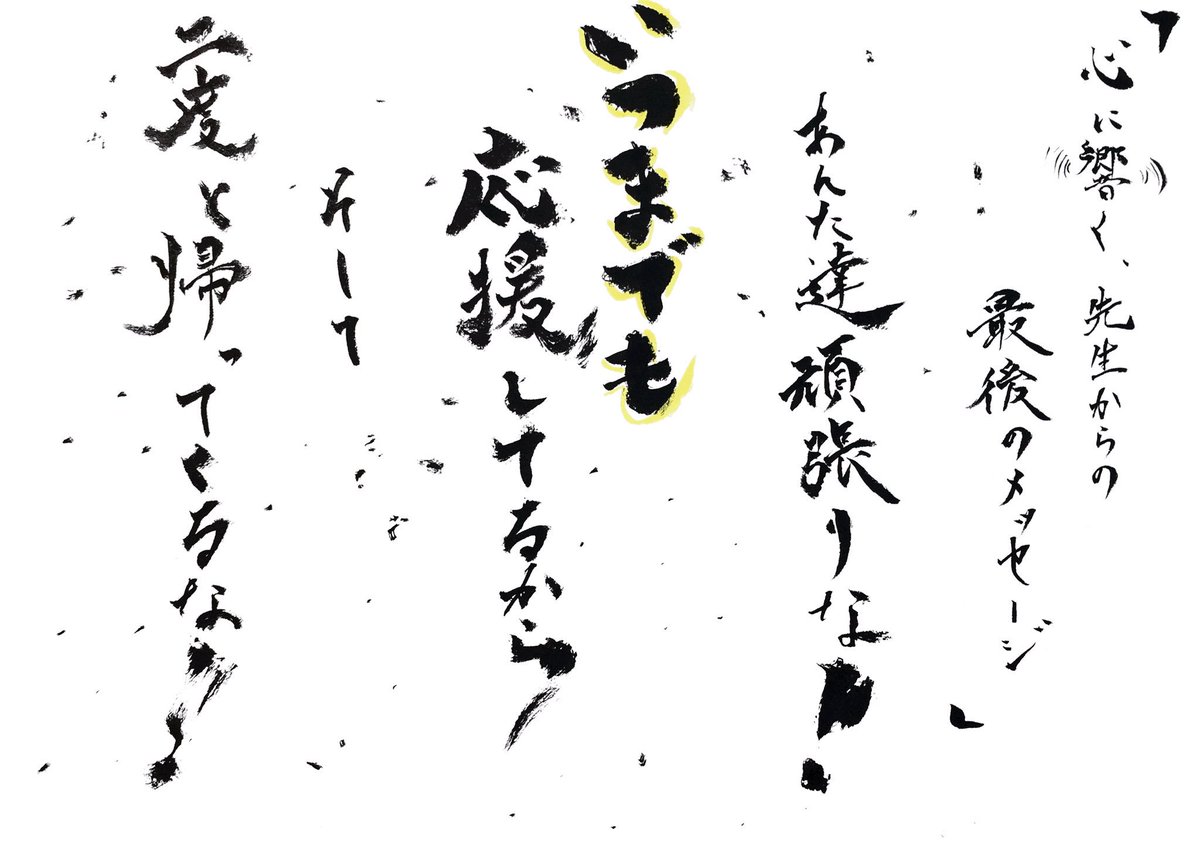 「心に響く、先生からの
最後のメッセージ」
あんた達頑張りな!
いつまでも
応援してるから
そして
二度と帰ってくるな!